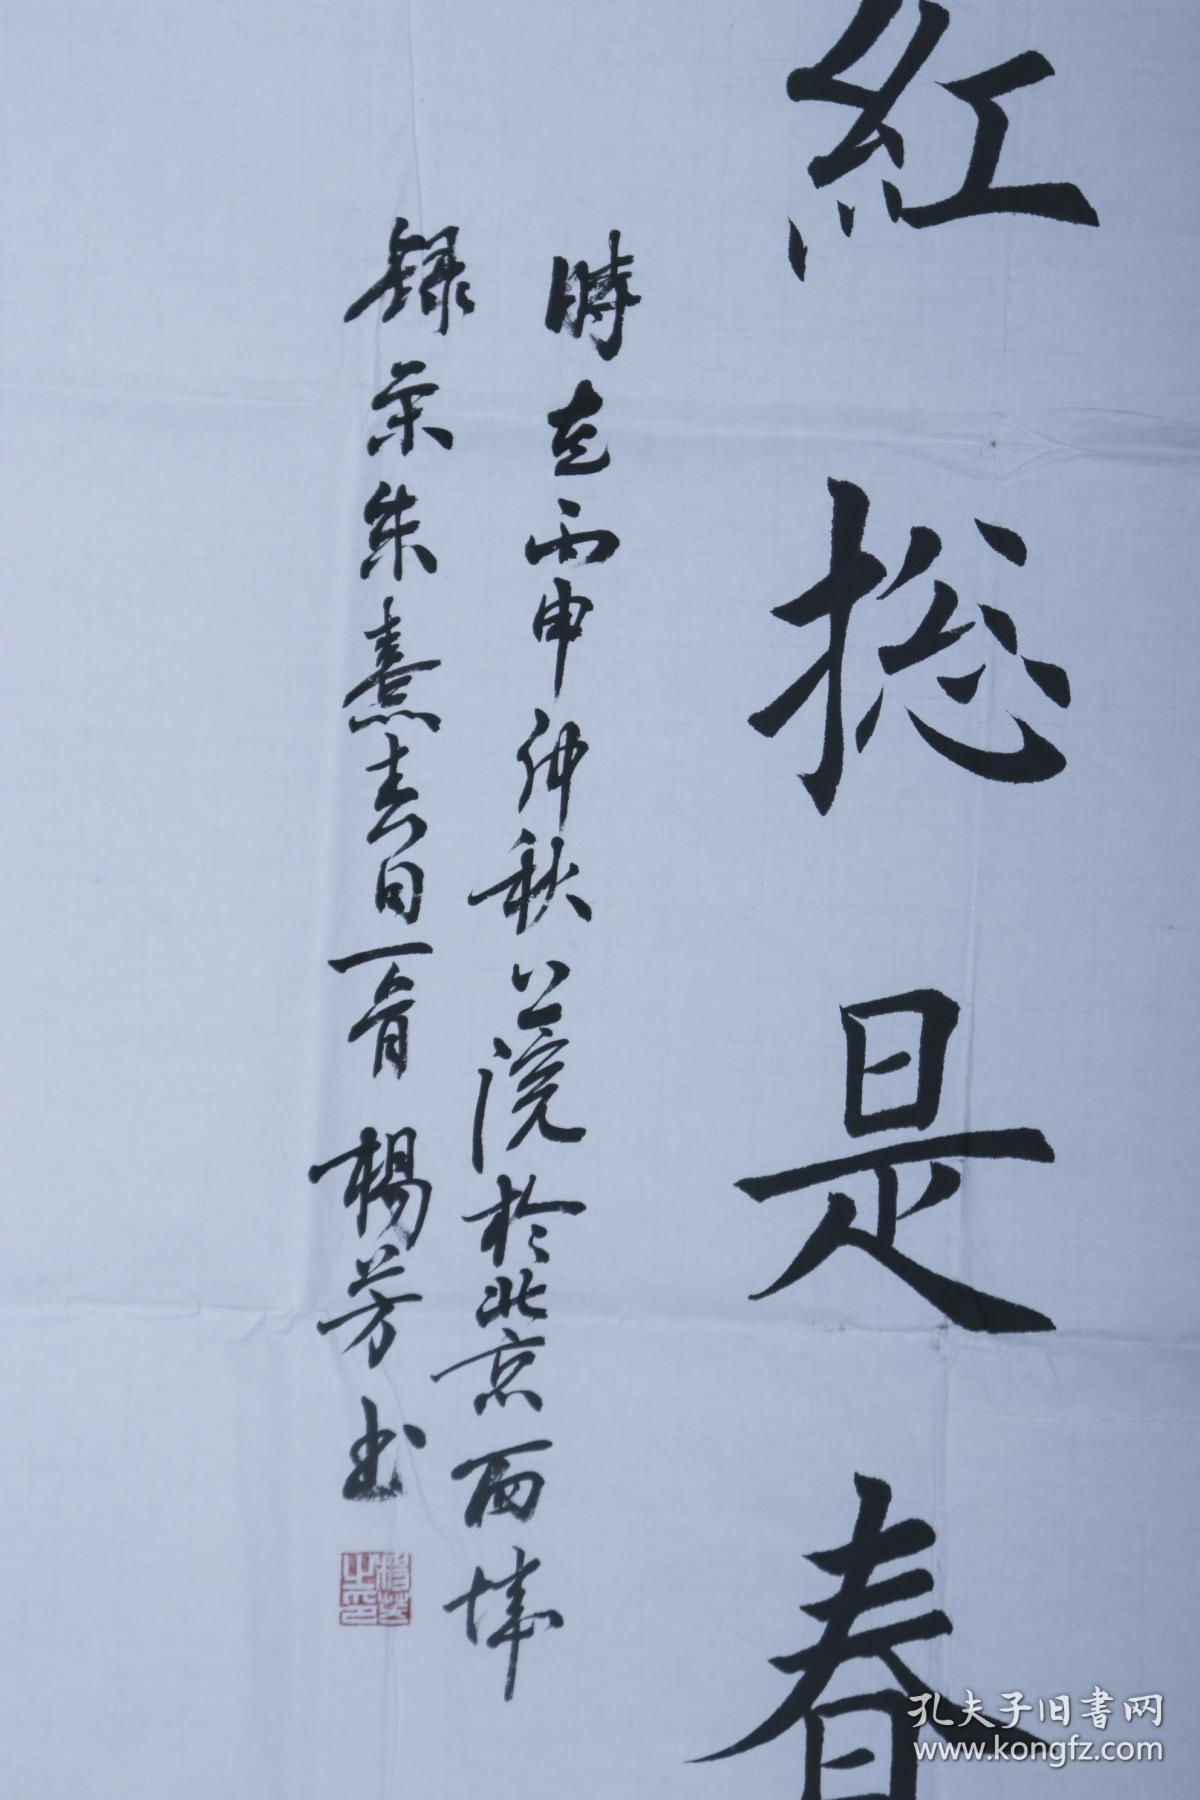 紅捴是春
時在丙申仲秋上浣於北京西城
錄宋朱熹春日一首 楊芳书
楊芳之印
孔夫子旧書网
www.kongfz.com